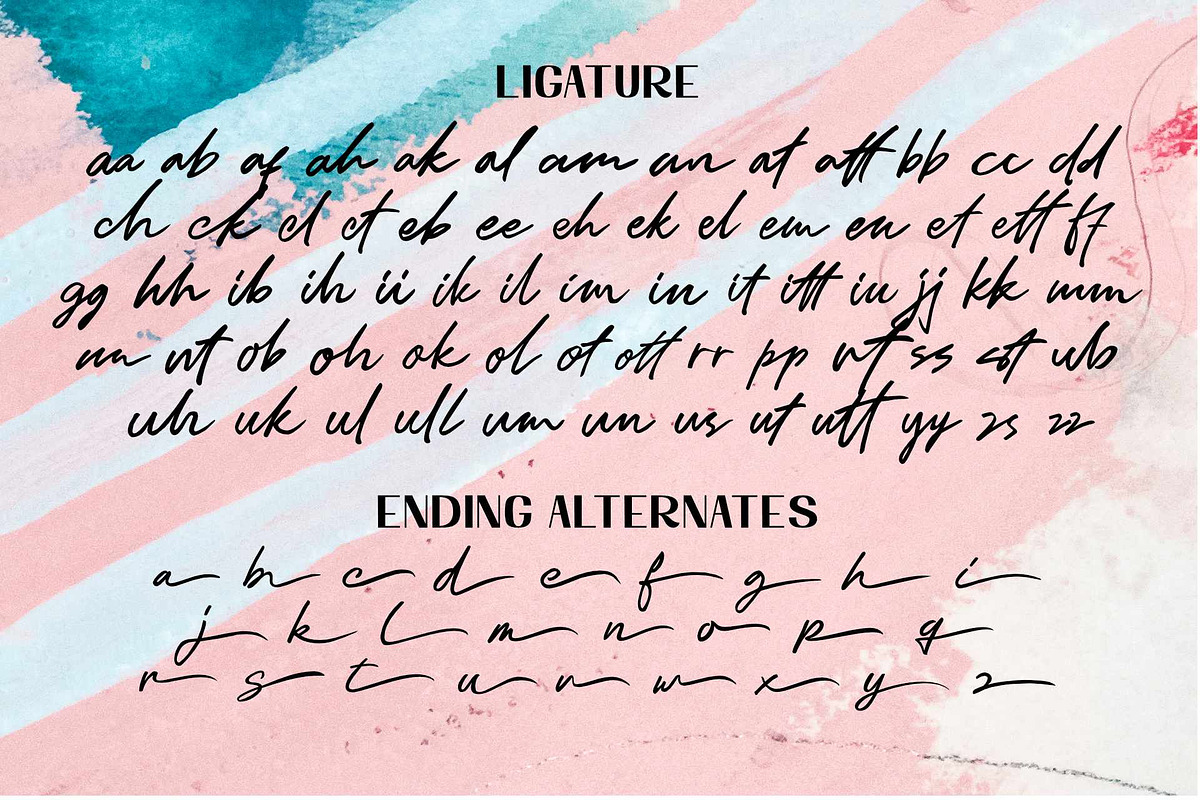 LIGATURE
aa ab af ah ak al am an at att bb cc dd
ch ck cl ct eb ee eh ek el em en et ett ff
gg hh ib ih ii ik il im in it itt iu jj kk mm
nn nt ob oh ok ol ot ott rr pp rt ss st ub
uh uk ul ull um un us ut utt yy zs zz
ENDING ALTERNATES
a b c d e f g h i
j k l m n o p q
r s t u v w x y z